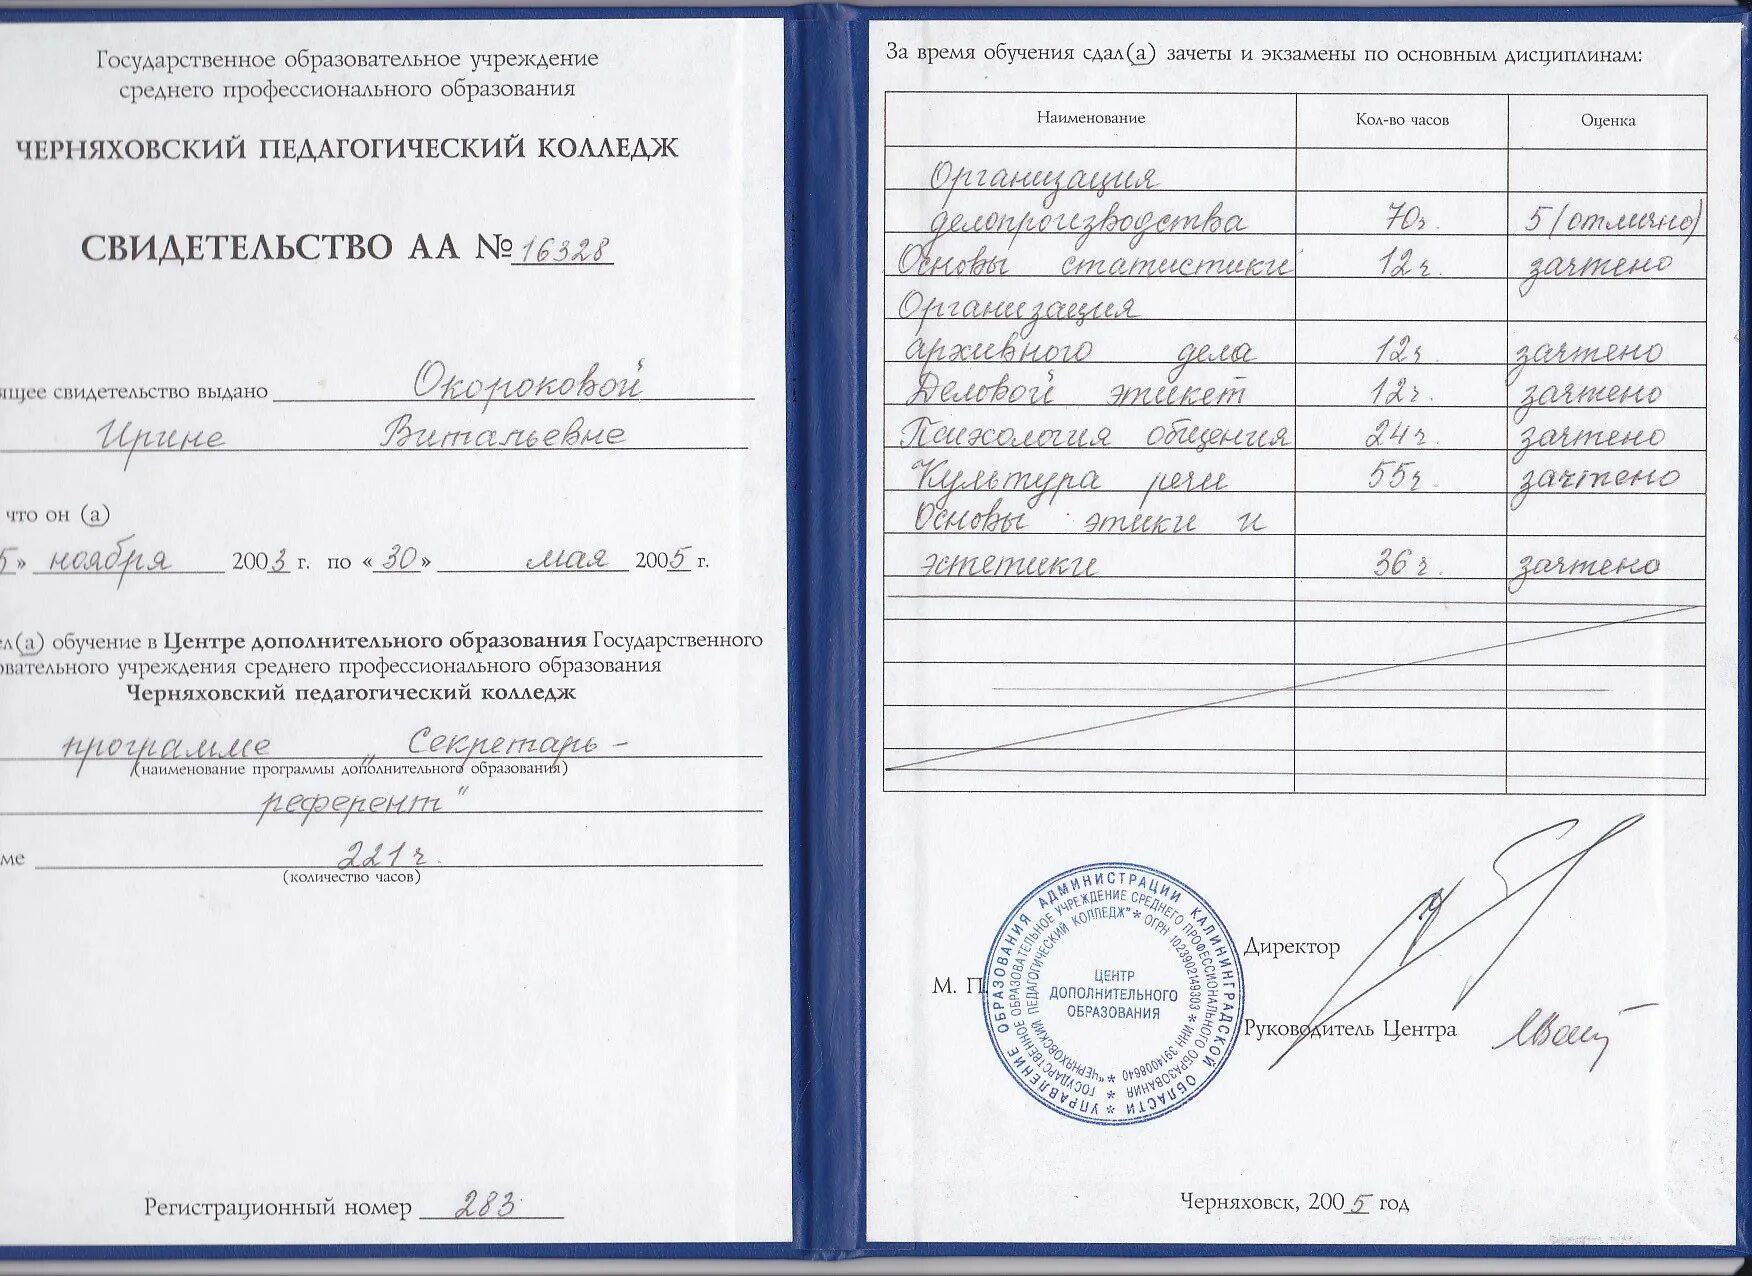 Государственное образовательное учреждение
среднего профессионального образования
ЧЕРНЯХОВСКИЙ ПЕДАГОГИЧЕСКИЙ КОЛЛЕДЖ
СВИДЕТЕЛЬСТВО АА № 16328
ящее свидетельство выдано Окороковой
Ирине Витальевне
что он (а)
5» ноября 2003 г. по «30» мая 2005 г.
ел(а) обучение в Центре дополнительного образования Государственного
овательного учреждения среднего профессионального образования
Черняховский педагогический колледж
программе „Секретарь-
(наименование программы дополнительного образования)
референт"
ме 221 ч.
(количество часов)
Регистрационный номер 283
За время обучения сдал(а) зачеты и экзамены по основным дисциплинам:
Наименование Кол-во часов Оценка
Организация
делопроизводства 70ч. 5 (отлично)
Основы статистики 12ч. зачтено
Организация
архивного дела 12ч. зачтено
Деловой этикет 12ч. зачтено
Психология общения 24ч. зачтено
Культура речи 55ч. зачтено
Основы этики и
эстетики 36ч. зачтено
Директор
М. П.
Руководитель Центра
УПРАВЛЕНИЕ ОБРАЗОВАНИЯ АДМИНИСТРАЦИИ КАЛИНИНГРАДСКОЙ ОБЛАСТИ *
ГОСУДАРСТВЕННОЕ ОБРАЗОВАТЕЛЬНОЕ УЧРЕЖДЕНИЕ СРЕДНЕГО ПРОФЕССИОНАЛЬНОГО ОБРАЗОВАНИЯ *
"ЧЕРНЯХОВСКИЙ ПЕДАГОГИЧЕСКИЙ КОЛЛЕДЖ" * ОГРН 1023902149303 * ИНН 3914008640 *
ЦЕНТР
ДОПОЛНИТЕЛЬНОГО
ОБРАЗОВАНИЯ
Черняховск, 2005 год